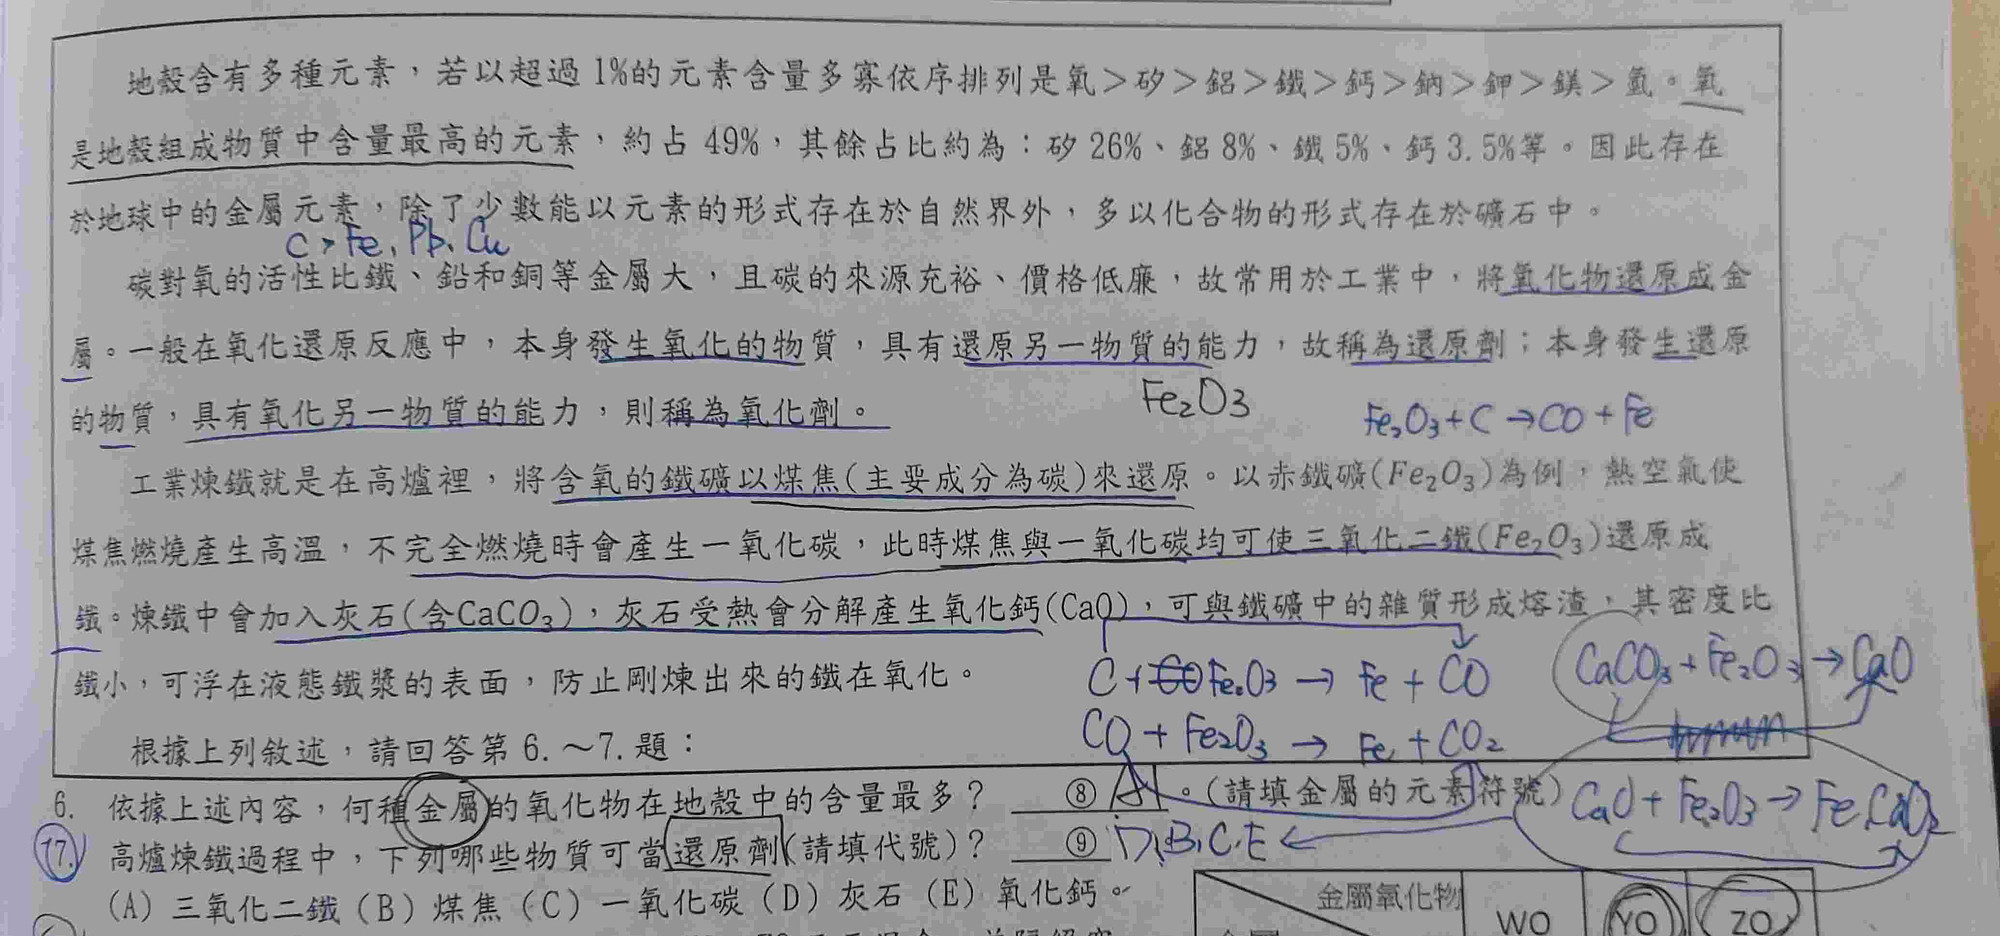 地殼含有多種元素，若以超過1%的元素含量多寡依序排列是氧＞矽＞鋁＞鐵＞鈣＞鈉＞鉀＞鎂＞氫。氧
是地殼組成物質中含量最高的元素，約占49%，其餘占比約為：矽26%、鋁8%、鐵5%、鈣3.5%等。因此存在
於地球中的金屬元素，除了少數能以元素的形式存在於自然界外，多以化合物的形式存在於礦石中。
C > Fe, Pb, Cu
碳對氧的活性比鐵、鉛和銅等金屬大，且碳的來源充裕、價格低廉，故常用於工業中，將氧化物還原成金
屬。一般在氧化還原反應中，本身發生氧化的物質，具有還原另一物質的能力，故稱為還原劑；本身發生還原
的物質，具有氧化另一物質的能力，則稱為氧化劑。
Fe₂O₃
Fe₂O₃+C→CO+Fe
工業煉鐵就是在高爐裡，將含氧的鐵礦以煤焦(主要成分為碳)來還原。以赤鐵礦(Fe₂O₃)為例，熱空氣使
煤焦燃燒產生高溫，不完全燃燒時會產生一氧化碳，此時煤焦與一氧化碳均可使三氧化二鐵(Fe₂O₃)還原成
鐵。煉鐵中會加入灰石(含CaCO₃)，灰石受熱會分解產生氧化鈣(CaO)，可與鐵礦中的雜質形成熔渣，其密度比
鐵小，可浮在液態鐵漿的表面，防止剛煉出來的鐵在氧化。
C+Fe₂O₃→Fe+CO
CaCO₃+Fe₂O₃→CaO
根據上列敘述，請回答第6.～7.題：
CO+Fe₂O₃→Fe+CO₂
6. 依據上述內容，何種金屬的氧化物在地殼中的含量最多？ ⑧Al。(請填金屬的元素符號)
CaO+Fe₂O₃→Fe,CaO₂
7. 高爐煉鐵過程中，下列哪些物質可當還原劑(請填代號)？ ⑨D,B,C,E
(A) 三氧化二鐵 (B) 煤焦 (C) 一氧化碳 (D) 灰石 (E) 氧化鈣。
金屬氧化物
WO
YO
ZO